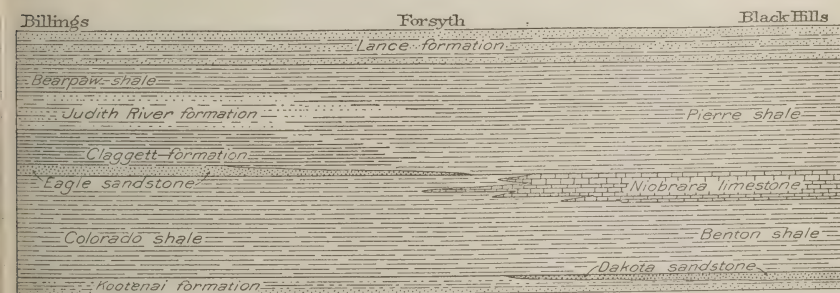 Billings Forsyth Black Hills
Lance formation
Bearpaw shale
Judith River formation Pierre shale
Claggett formation
Eagle sandstone Niobrara limestone
Colorado shale Benton shale
Dakota sandstone
Kootenai formation